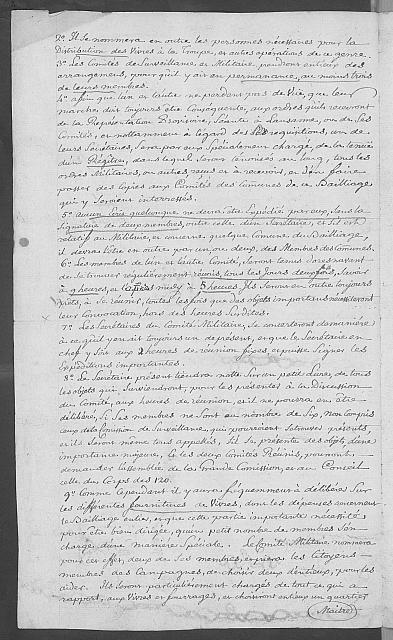 2º. Il se nommera en outre les personnes nécessaires pour la
Distribution des Vivres à la Troupe, et autres opérations de ce genre.
3º. Les Comités de Surveillance, et Militaire prendront entr'eux des
arrangemens, pour qu'il y ait en permanance, au moins trois
de leurs membres.
4º. afin que l'un et l'autre ne perdent pas de Vue, que leur
marche doit toujours être Conséquente, aux ordres qu'ils recevront
de la Représentation Provisoire, Séante à Lausanne, ou de ses
Comités, et notamment à l'égard des Réquisitions, un de
leurs Secrétaires, sera par eux Spécialement chargé, de la tenue
d'un Régître, dans lequel seront tenorisés au long, tous les
ordres Militaires, ou autres reçus et à recevoir, et d'en faire
passer des copies aux Comités des Communes de ce Bailliage
qui y seroient interressés.
5º. aucun avis quelconque ne devra être Expédié par eux, sans la
Signature de deux membres, outre celle d'un Secrétaire, et s'il est
relatif au Militaire, et concerne quelque Commune du Bailliage,
il devra l'être en outre par un ou deux, des Membres des Communes.
6º. Les membres de l'un et l'autre Comité, seront tenus dorésnavant
de se trouver régulièrement réunis, tous les jours deux fois, Savoir
à 9 heures, et à 5 heures. Ils seront en outre toujours
prêts, à se réunir, toutes les fois que des objets importans nécessiteront
leur Convocation, hors des heures susdites.
7º. Les Secrétaires du Comité Militaire, se concerteront de manière
à ce qu'il y en ait toujours un de présent, et que le Secrétaire en
chef y soit aux 2 heures de réunion fixes et puisse Signer les
Expéditions importantes.
8º. Le Secrétaire présent tiendra notte Sur un petit Livre, de tous
les objets qui Surviendront, pour les présenter à la Discussion
du Comité, aux heures de réunion, et il ne pourra en être
délibéré, si les membres ne sont au nombre de Six, non Compris
ceux de la Comission de Surveillance, qui pourroient se trouver présents,
et ils seront même tous appellés, s'il se présente des objets d'une
importance majeure, & les deux Comités Réunis, pourront
demander l'assemblée de la Grande Comission, et au Conseil
celle du Corps des 120.
9º. Comme Cependant il y aura fréquemment à délibérer sur
les différentes fournitures de Vivres, dont les dépenses concernent
le Bailliage entier, et que cette partie importante nécessite
pour être bien dirigée, qu'un petit nombre de membres S'en
charge, d'une manière Spéciale. Le Comité Militaire nommera
pour cet effet, deux de ses membres, et priera les Citoyens
membres des Campagnes, de choisir deux d'entr'eux, pour les
aider. Ils seront particulièrement chargés de tout ce qui a
rapport, aux Vivres et fourrages, et choisiront entr'eux un quartier
Maitre